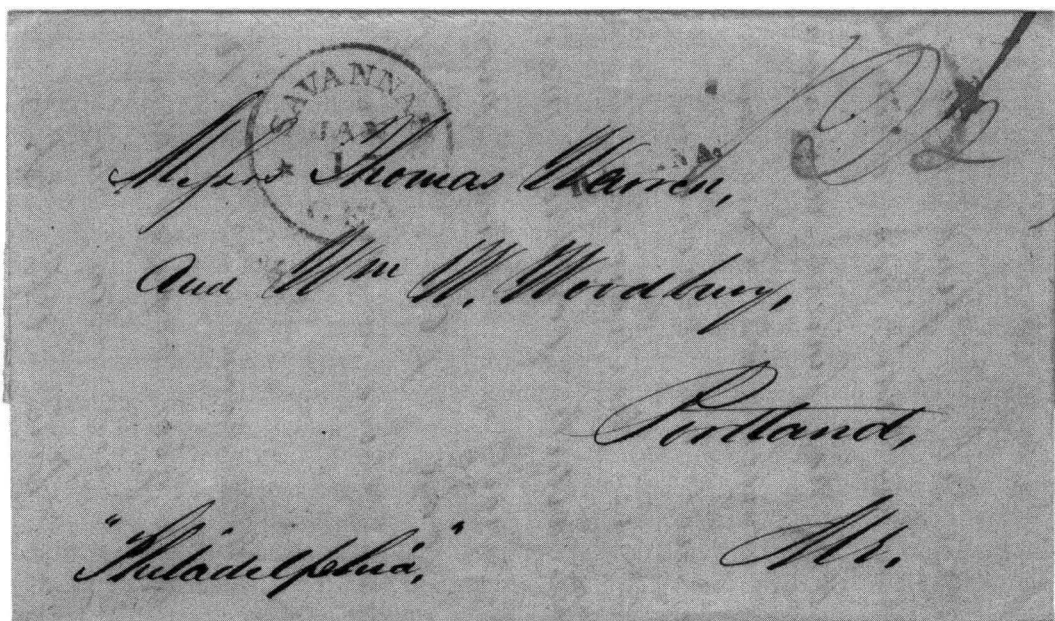 SAVANNAH
JAN
GEO.
Messrs Thomas Warren,
and Wm W. Woodbury,
Portland,
Me.
"Philadelphia,"